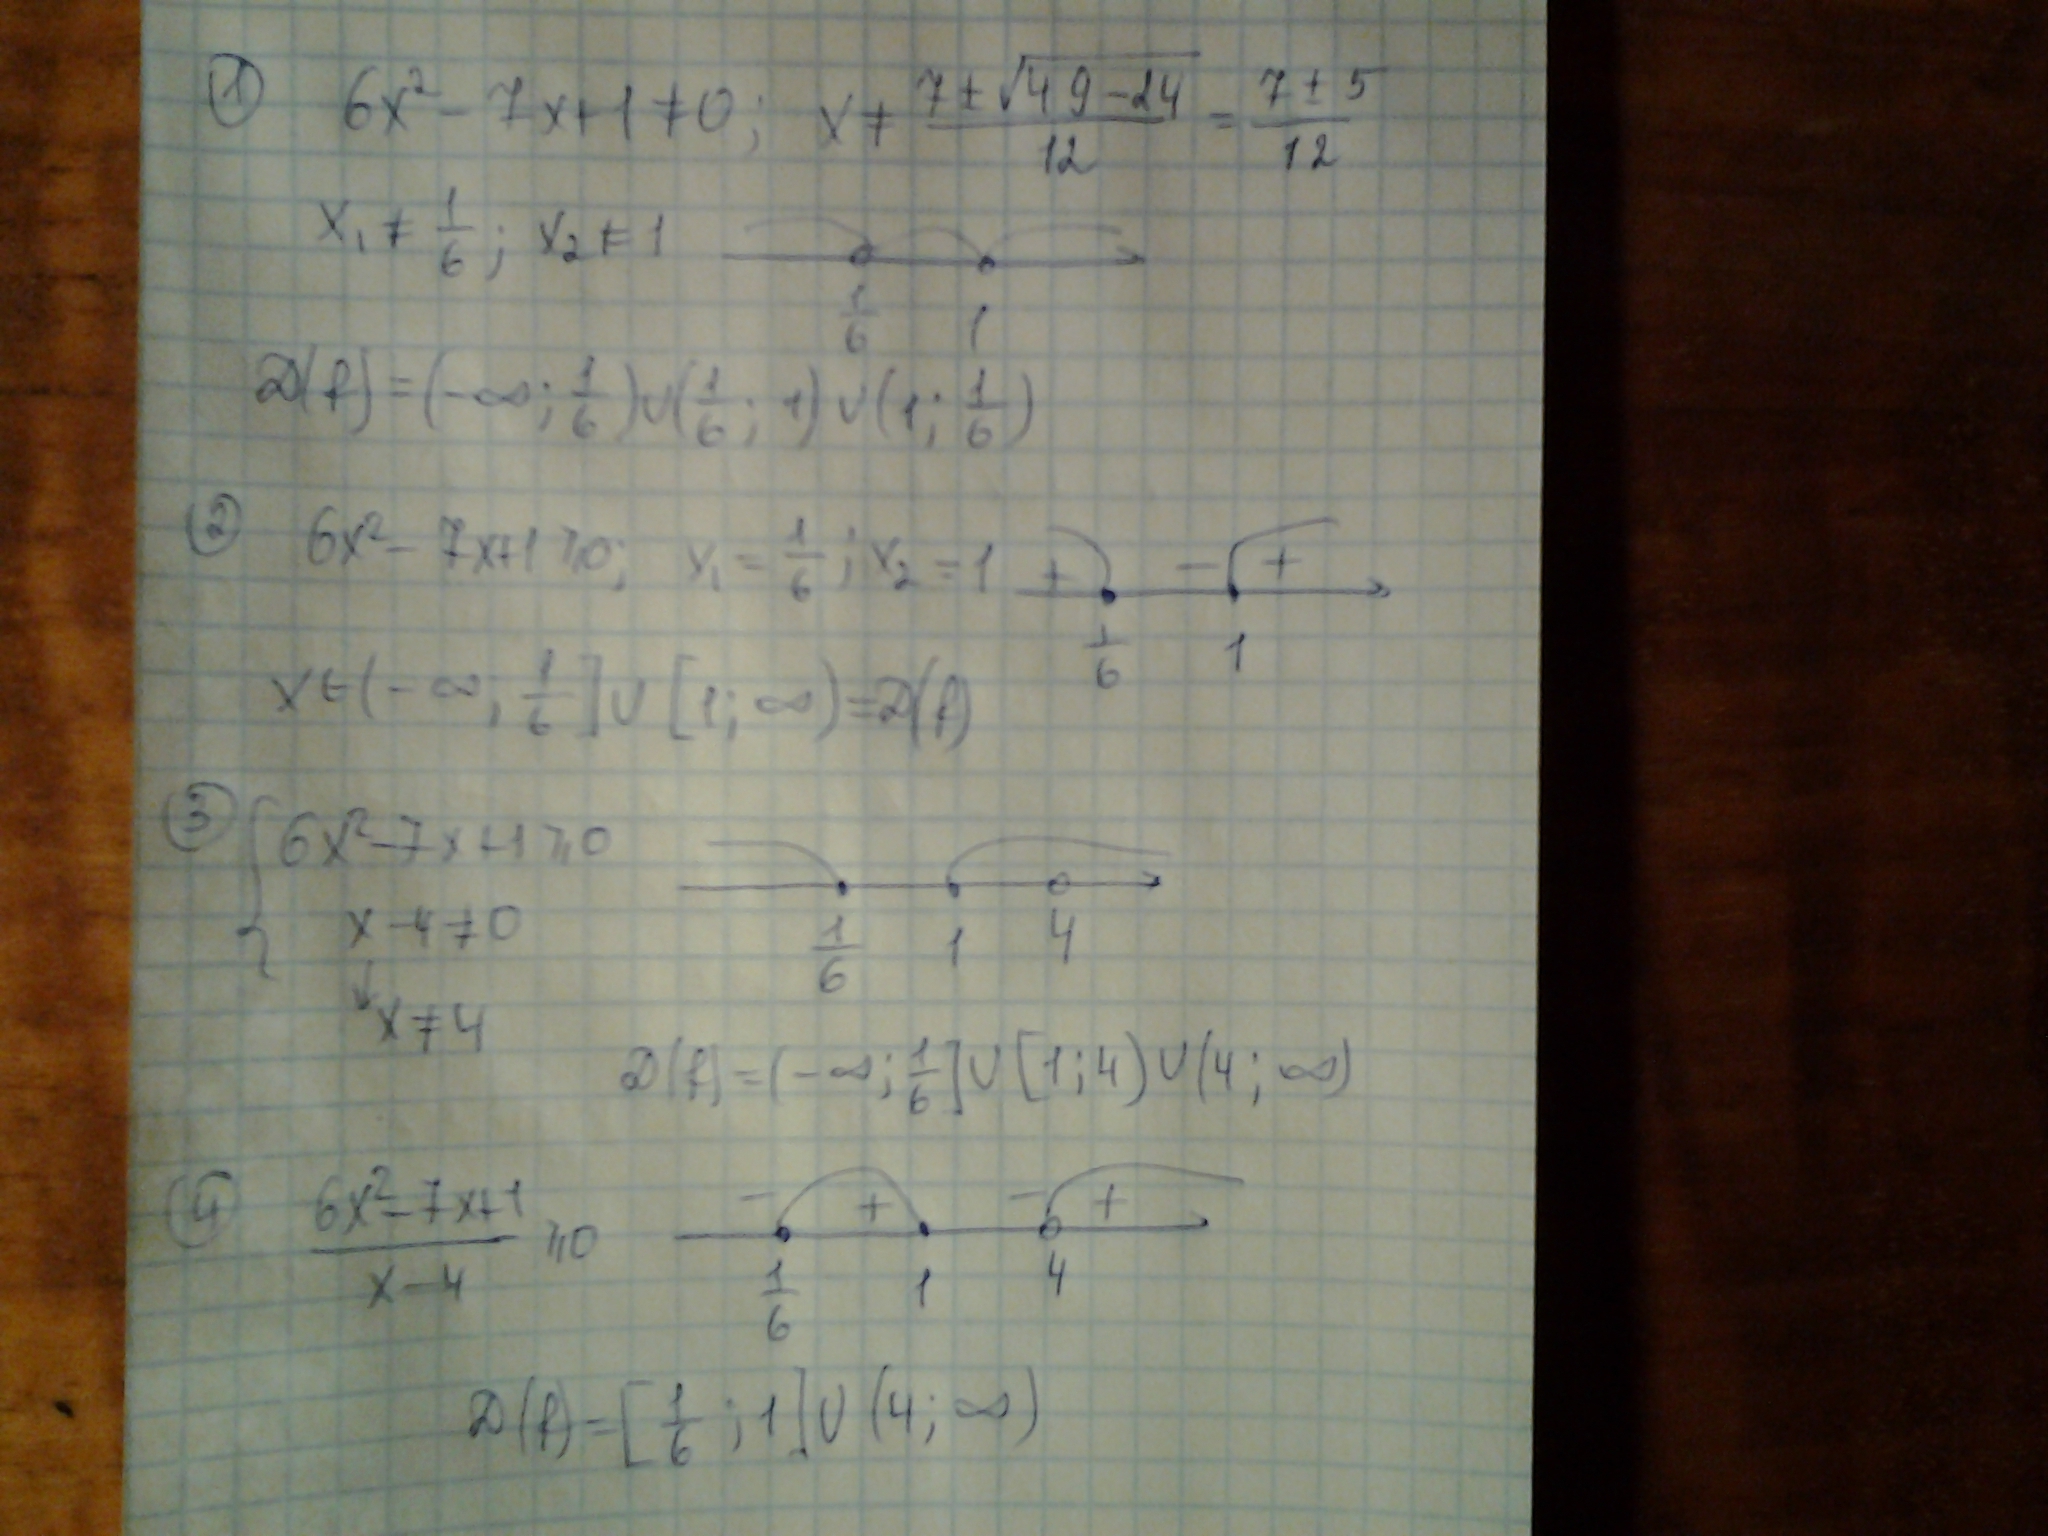 ① 6x² − 7x + 1 ≠ 0; x ≠ (7 ± √(49 − 24))/12 = (7 ± 5)/12
x₁ ≠ 1/6; x₂ ≠ 1
1/6 1
D(f) = (−∞; 1/6) ∪ (1/6; 1) ∪ (1; 1/6)
② 6x² − 7x + 1 ⩾ 0; x₁ = 1/6; x₂ = 1 + − +
1/6 1
x ∈ (−∞; 1/6] ∪ [1; ∞) = D(f)
③ { 6x² − 7x + 1 ⩾ 0
x − 4 ≠ 0
1/6 1 4
↓
x ≠ 4
D(f) = (−∞; 1/6] ∪ [1; 4) ∪ (4; ∞)
④ (6x² − 7x + 1)/(x − 4) ⩾ 0 − + − +
1/6 1 4
D(f) = [1/6; 1] ∪ (4; ∞)